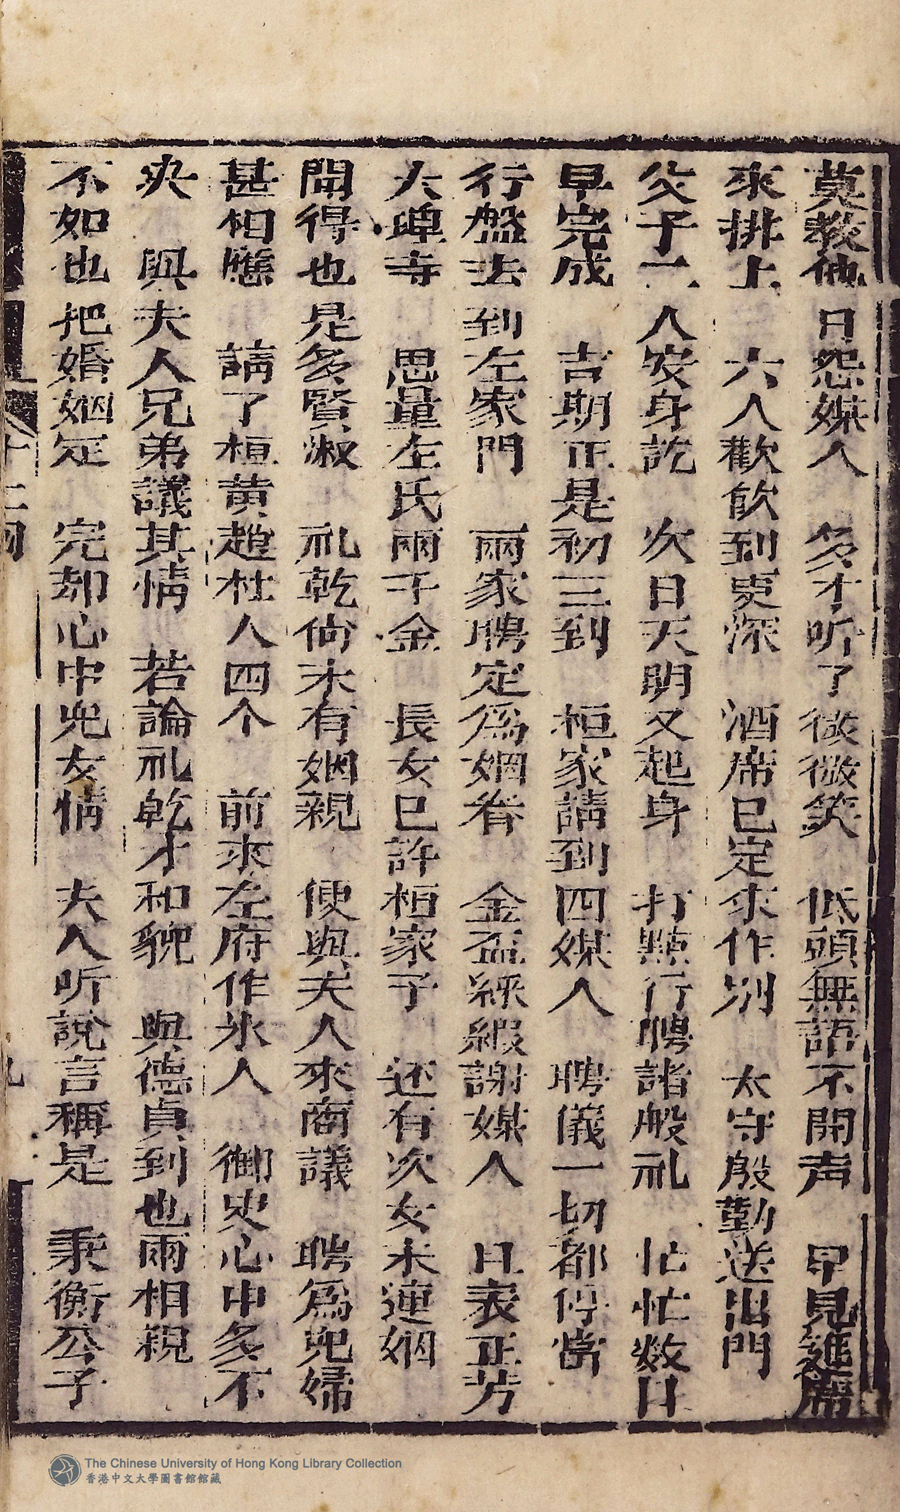 莫教他日怨媒人　多才听了微微笑　低頭無語不開声　早見筵席
來排上　六人歡飲到更深　酒席已定來作別　太守殷勤送出門
父子二人安身訖　次日天明又起身　打點行聘諸般礼　忙忙数日
早完成　吉期正是初三到　桓家請到四媒人　聘儀一切都停當
行盤去到左家門　兩家聘定爲姻眷　金盃綵緞謝媒人　且表正芳
大　寺　思量左氏兩千金　長女已許桓家子　还有次女未連姻
聞得也是多賢淑　礼乾尙未有姻親　便與夫人來商議　聘爲兒婦
甚相應　請了桓黄趙杜人四个　前來左府作氷人　御史心中多不
决　與夫人兄弟議其情　若論礼乾才和貌　與德貞到也兩相親
不如也把婚姻定　完却心中兒女情　夫人听說言稱是　秉衡公子
十二回
九
The Chinese University of Hong Kong Library Collection
香港中文大學圖書館館藏